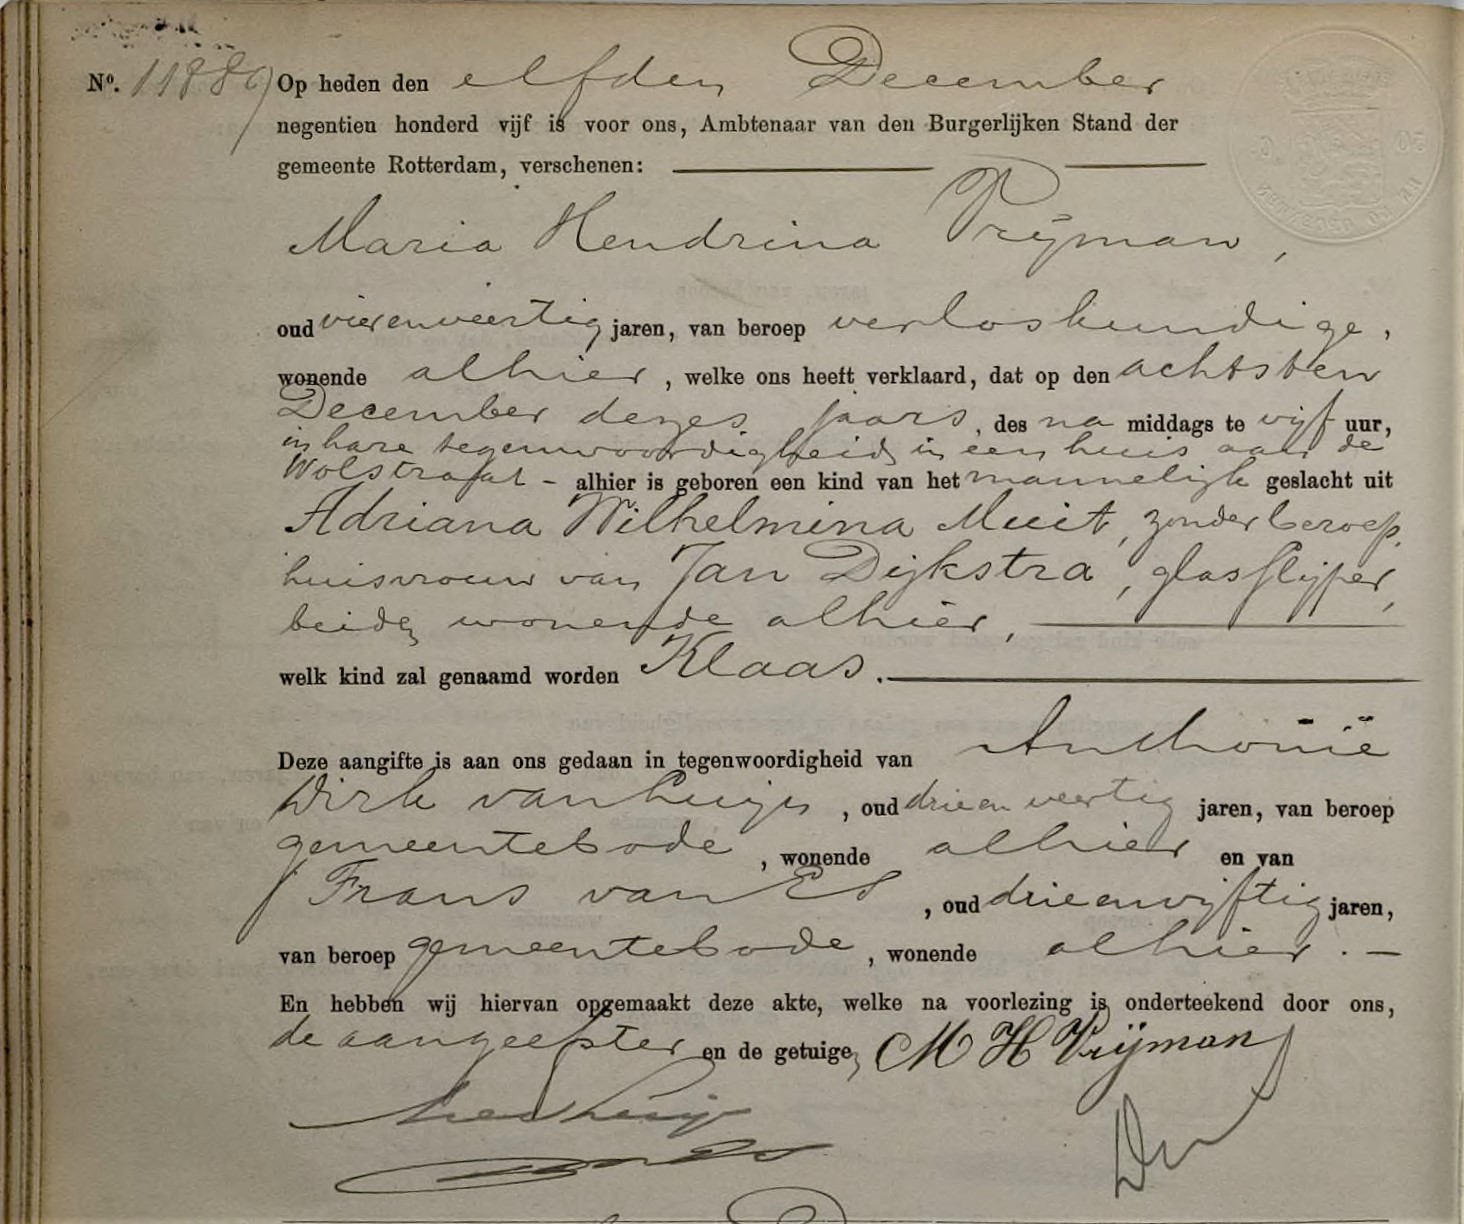 No. 11886 Op heden den elfden December
negentien honderd vijf is voor ons, Ambtenaar van den Burgerlijken Stand der
gemeente Rotterdam, verschenen:
Maria Hendrina Vrijman,
oud vierenveertig jaren, van beroep verloskundige,
wonende alhier, welke ons heeft verklaard, dat op den achtsten
December dezes jaars, des na middags te vijf uur,
in hare tegenwoordigheid in een huis aan de
Wolstraat - alhier is geboren een kind van het mannelijk geslacht uit
Adriana Wilhelmina Muit, zonder beroep,
huisvrouw van Jan Dijkstra, glasslijper,
beiden wonende alhier,
welk kind zal genaamd worden Klaas.
Deze aangifte is aan ons gedaan in tegenwoordigheid van Anthonie
Dirk van, oud drieenveertig jaren, van beroep
gemeentebode, wonende alhier en van
Frans van Es, oud drieenvijftig jaren,
van beroep gemeentebode, wonende alhier. -
En hebben wij hiervan opgemaakt deze akte, welke na voorlezing is onderteekend door ons,
de aangeefster en de getuigen M H Vrijman